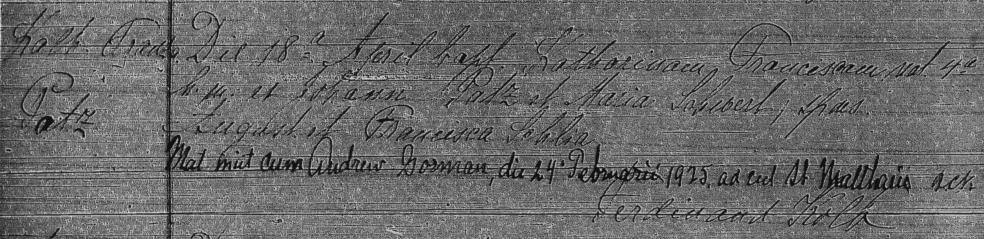 Kath. Franc. Die 18ª April bapt. Katharinam Franciscam nat. 4ª
h. m. et Johann Patz et Maria Schubert, spons.
Patz August et Francisca
Mat init cum Andrew Gorman, die 24ª Februarii 1925, ad eccl St Matthaeis
Ferdinand Kolb